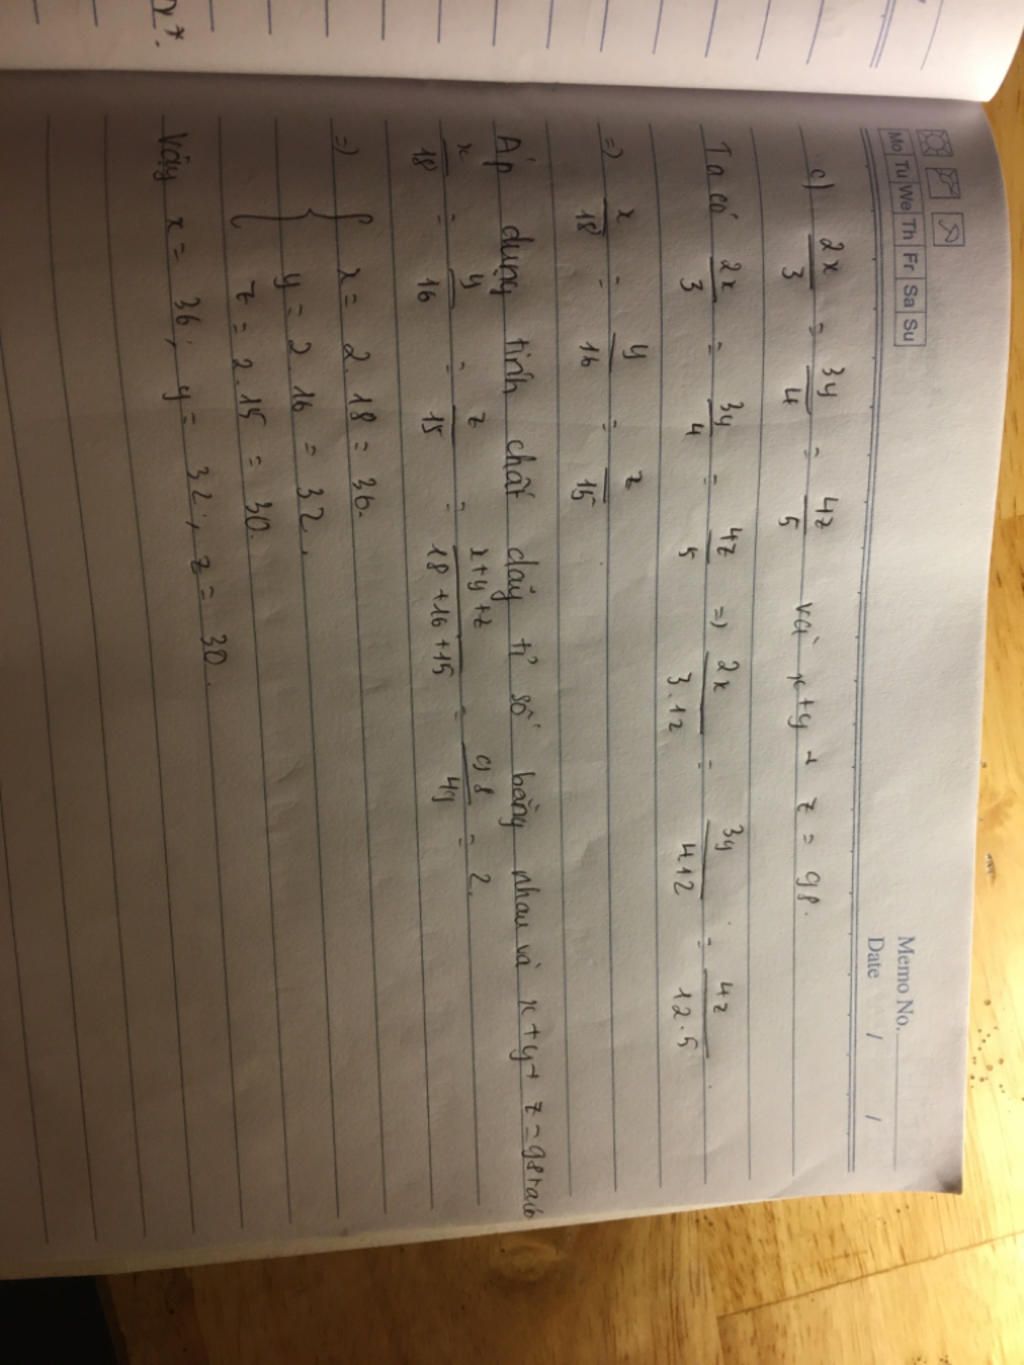 Memo No.
Mo Tu We Th Fr Sa Su
Date / /
c) 2x/3 = 3y/4 = 4z/5 và x+y+z = 98.
Ta có 2x/3 = 3y/4 = 4z/5 => 2x/3.12 = 3y/4.12 = 4z/12.5
=> x/18 = y/16 = z/15
Áp dụng tính chất dãy tỉ số bằng nhau và x+y+z=98 ta có
x/18 = y/16 = z/15 = x+y+z/18+16+15 = 98/49 = 2.
=> { x = 2.18 = 36.
y = 2.16 = 32.
z = 2.15 = 30.
Vậy x = 36; y = 32; z = 30.